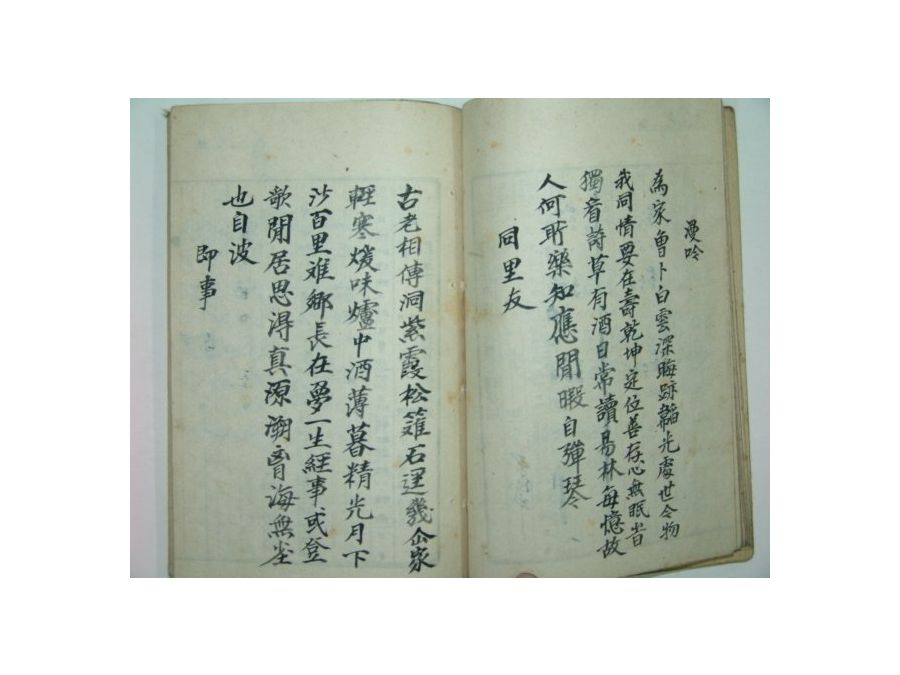 漫吟
為家曾卜白雲深晦跡韜光處世今物
我同情要在壽乾坤定位善存心無眠省
獨音詩草有酒日常讀易林每憶故
人何所樂知應閒暇自彈琴
同里友
古老相傳洞紫霞松蘿石逕幾仚家
輕寒煖味爐中酒薄暮精光月下
沙百里难鄉長在夢一生經事或登
歌閒居思淂真源溯 海無尘
也自波
即事